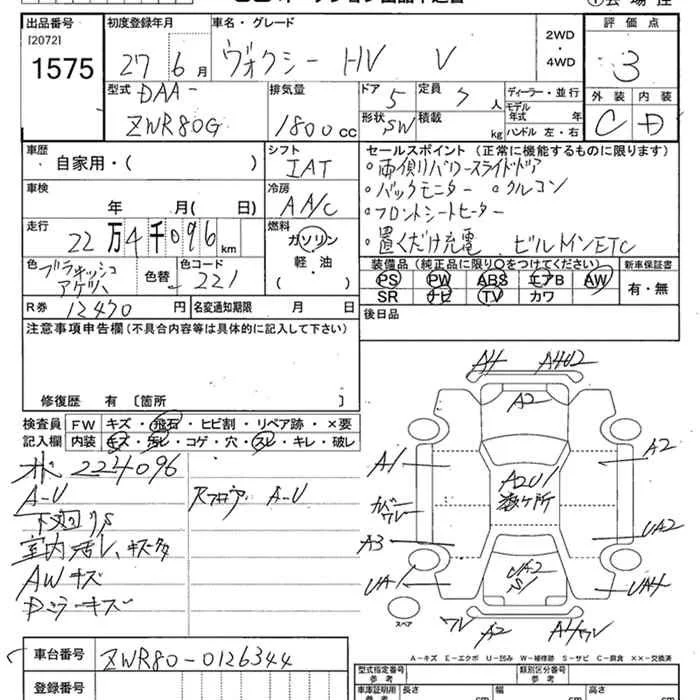 出品番号 初度登録年月 車名・グレード 2WD ・ 4WD 評価点
[2072]
1575 27 6月 ヴォクシー HV V 3
型式 DAA- 排気量 ドア 5 定員 7人 ディーラー・並行 外装 内装
ZWR80G 1800cc 形状 SW 積載 kg モデル年式 年 ハンドル 左・右 C D
車歴 シフト セールスポイント (正常に機能するものに限ります)
自家用・( ) IAT 。両側パワースライドドア
車検 冷房 。バックモニター 。クルコン
年 月( 日) A/C 。フロントシートヒーター
走行 燃料 。置くだけ充電 ビルトインETC
22万4千096km ガソリン
軽・油
( )
装備品(純正品に限り○をつけてください) 新車保証書
色 色替 色コード PS PW ABS エアB AW 有・無
221 SR ナビ TV カワ
R券 12470円 名変通知期限 月 日 後日品
注意事項申告欄(不具合内容等は具体的に記入して下さい)
修復歴 有 〔箇所 〕
検査員 FW キズ・飛石・ヒビ割・リペア跡・×要
記入欄 内装 キズ・汚れ・コゲ・穴・スレ・キレ・破レ
224096
A-U Rフロア A-U
下廻りS
AWキズ
A4 A4U2
A2
A1 A2
A2U1
数ヶ所
カバー
ワレ
A3 UA2
UA1 UA2
S1 UA4
スペア
ワレ A2
A-キズ E-エクボ U-凹み W-補修跡 S-サビ C-腐食 ××-交換済
車台番号 ZWR80-0126344
登録番号
型式指定番号 参考 類別区分番号 参考
車庫証明用 参考 長さ cm 幅 cm 高さ cm